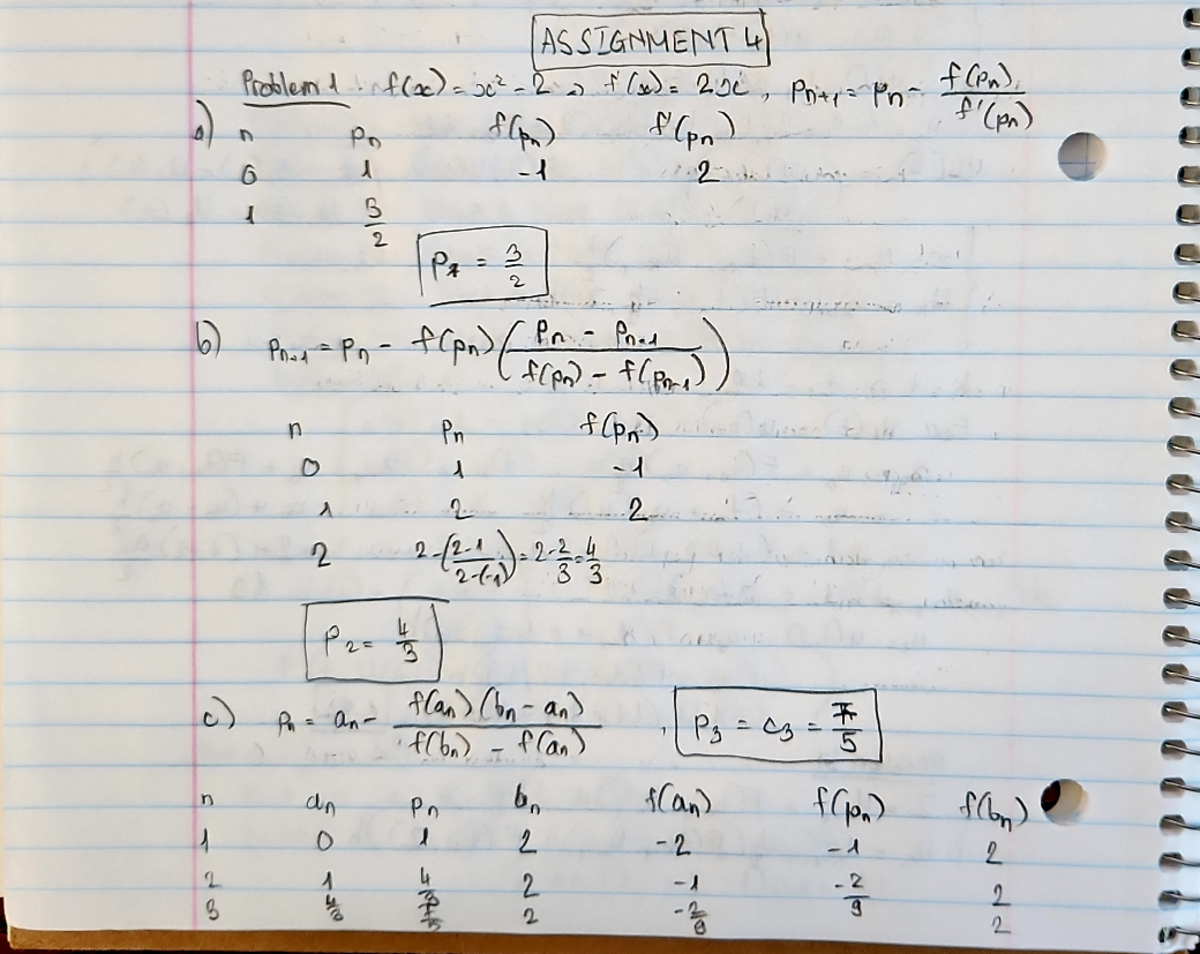 ASSIGNMENT 4
Problem 1 : f(x) = x² - 2 → f'(x) = 2x , pₙ₊₁ = pₙ - f(pₙ)/f'(pₙ)
a) n pₙ f(pₙ) f'(pₙ)
0 1 -1 2
1 3/2
p₁ = 3/2
b) pₙ₊₁ = pₙ - f(pₙ) ( (pₙ - pₙ₋₁) / (f(pₙ) - f(pₙ₋₁)) )
n pₙ f(pₙ)
0 1 -1
1 2 2
2 2-((2-1)/(2-(-1))) = 2-2/3 = 4/3
p₂ = 4/3
c) pₙ = aₙ - f(aₙ)(bₙ - aₙ) / (f(bₙ) - f(aₙ)) , p₃ = c₃ = 7/5
n aₙ pₙ bₙ f(aₙ) f(pₙ) f(bₙ)
1 0 1 2 -2 -1 2
2 1 4/3 2 -1 -2/9 2
3 4/3 7/5 2 -2/9 2